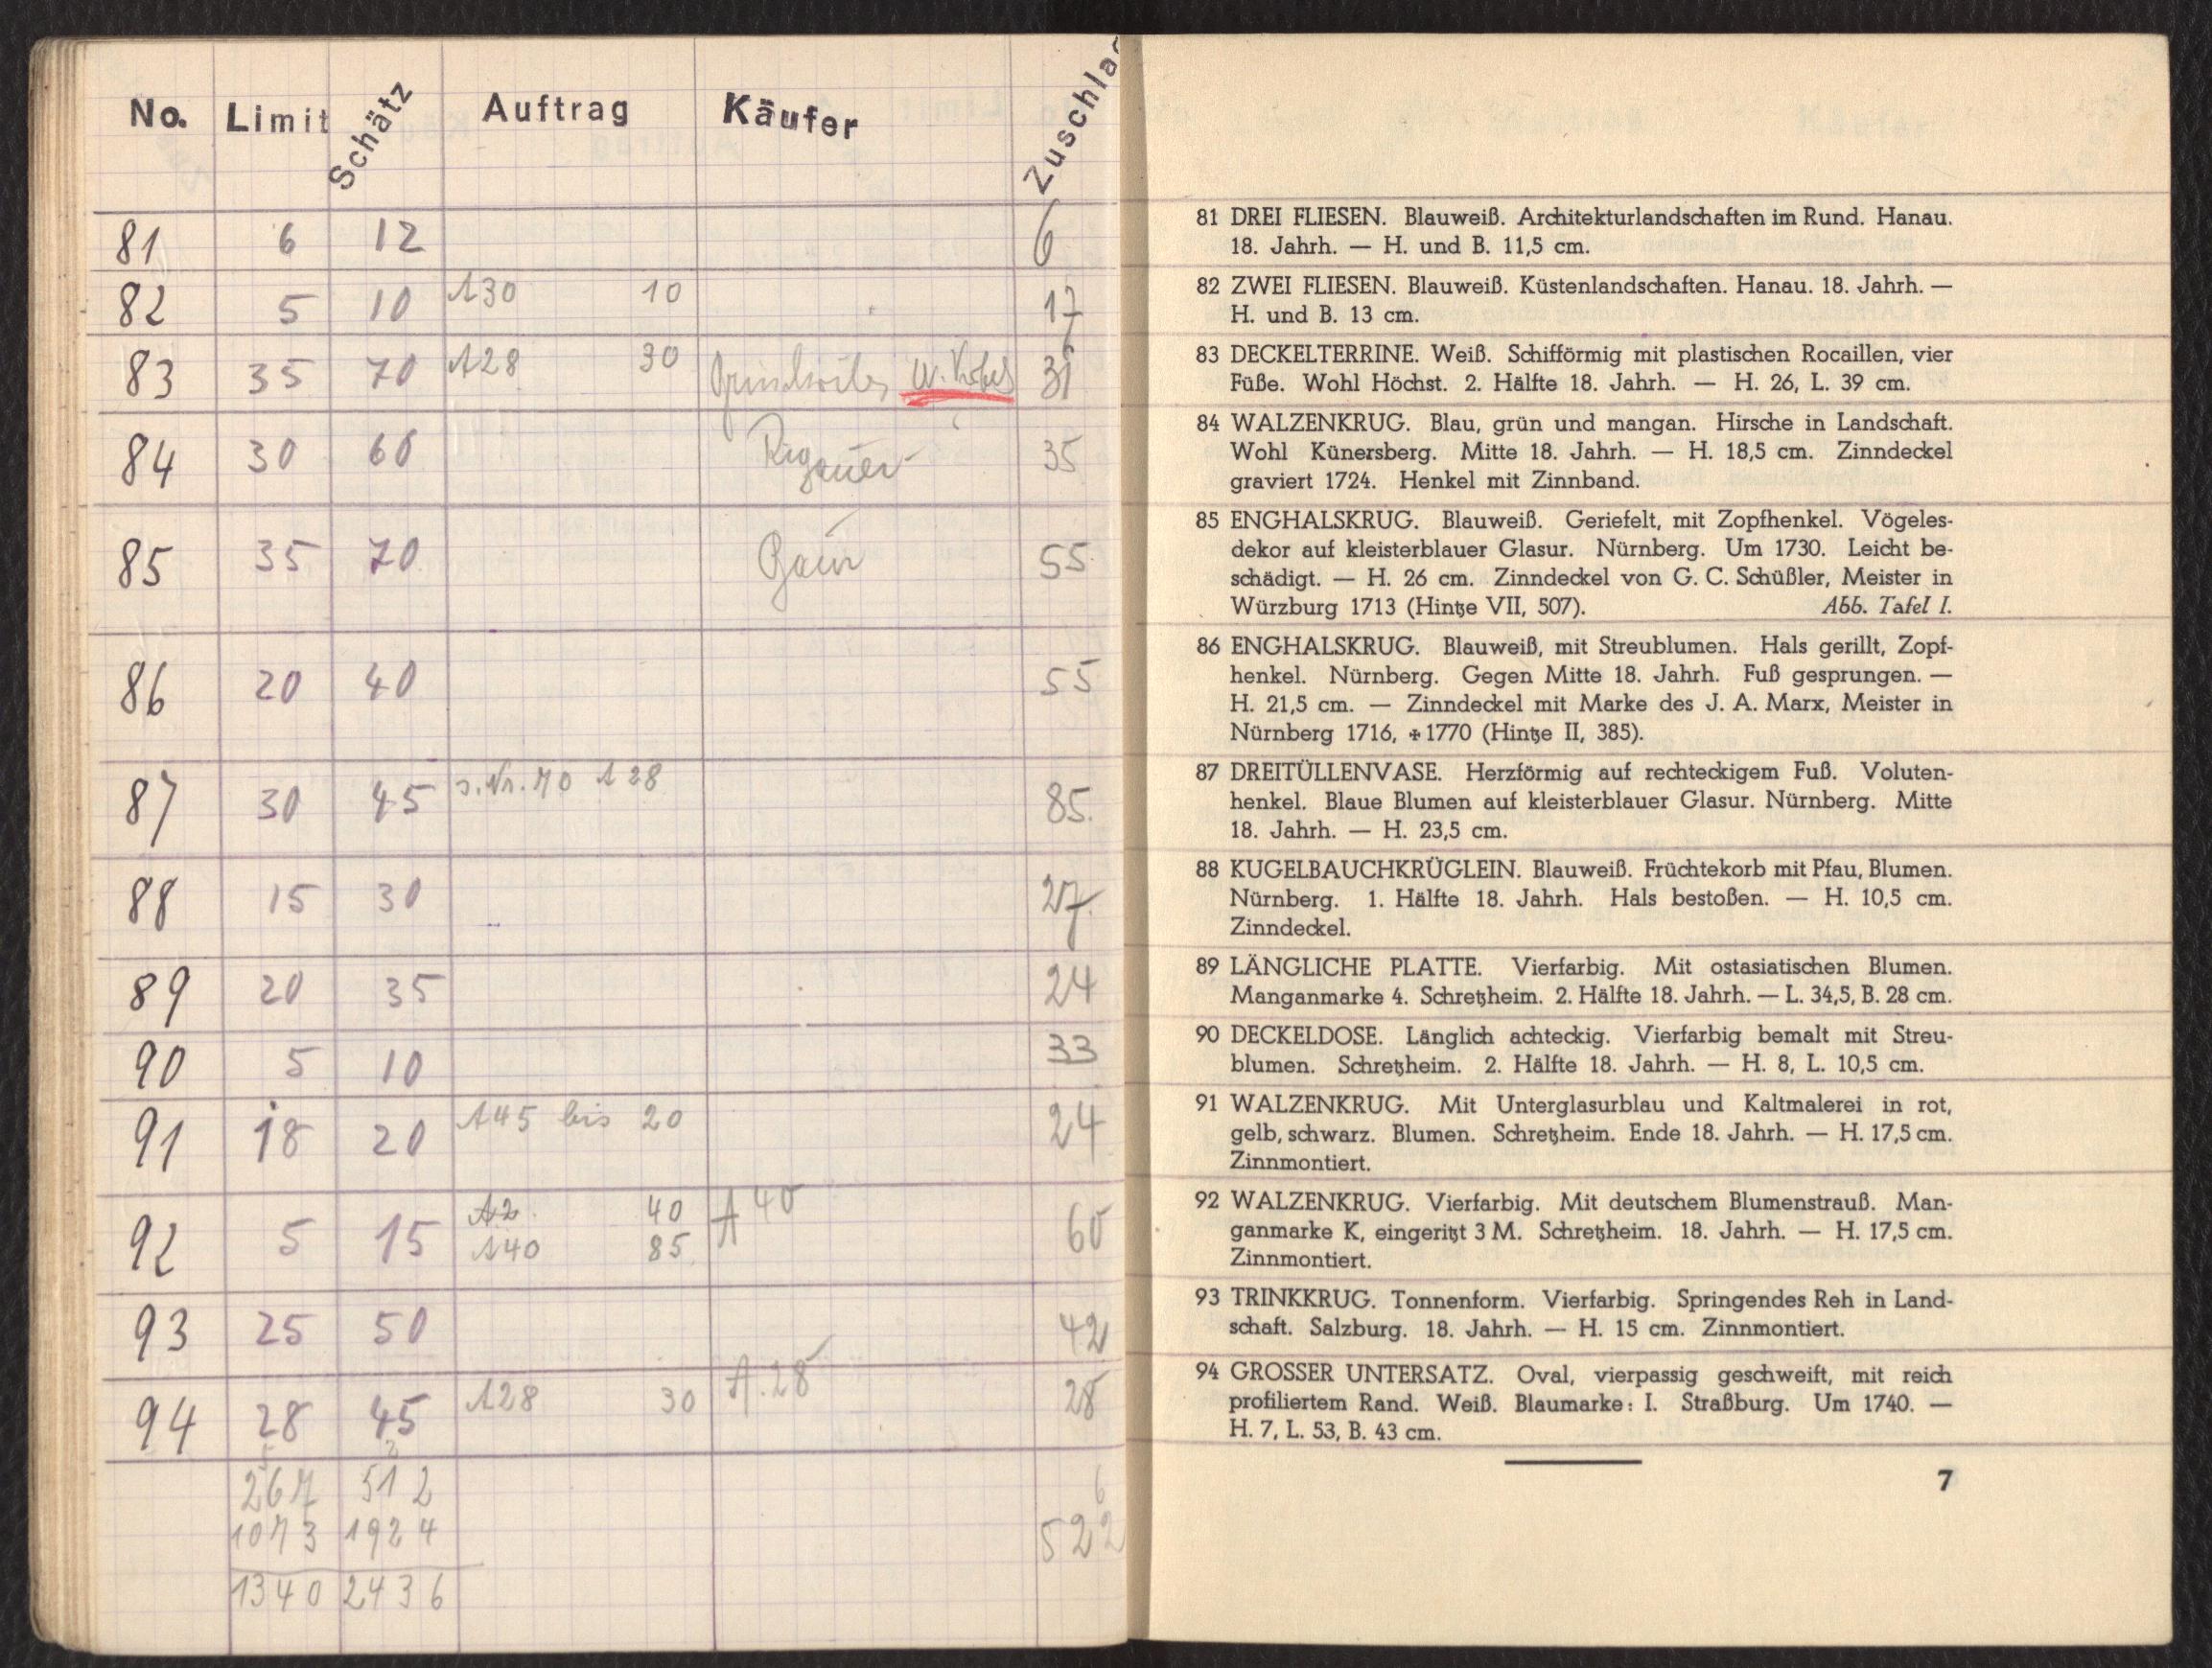 No. Limit Schätz Auftrag Käufer Zuschlag
81 6 12 6
82 5 10 A30 10 17
83 35 70 A28 30 31
84 30 60 35
85 35 70 55
86 20 40 55
87 30 45 s. Nr. 70 A 28 85.
88 15 30 27
89 20 35 24
90 5 10 33
91 18 20 A45 bis 20 24
92 5 15 A2 40 A 40 60
A40 85
93 25 50 42
94 28 45 A28 30 A. 28 28
267 512
1073 1924 522
1340 2436
81 DREI FLIESEN. Blauweiß. Architekturlandschaften im Rund. Hanau.
18. Jahrh. — H. und B. 11,5 cm.
82 ZWEI FLIESEN. Blauweiß. Küstenlandschaften. Hanau. 18. Jahrh. —
H. und B. 13 cm.
83 DECKELTERRINE. Weiß. Schifförmig mit plastischen Rocaillen, vier
Füße. Wohl Höchst. 2. Hälfte 18. Jahrh. — H. 26, L. 39 cm.
84 WALZENKRUG. Blau, grün und mangan. Hirsche in Landschaft.
Wohl Künersberg. Mitte 18. Jahrh. — H. 18,5 cm. Zinndeckel
graviert 1724. Henkel mit Zinnband.
85 ENGHALSKRUG. Blauweiß. Geriefelt, mit Zopfhenkel. Vögeles-
dekor auf kleisterblauer Glasur. Nürnberg. Um 1730. Leicht be-
schädigt. — H. 26 cm. Zinndeckel von G. C. Schüßler, Meister in
Würzburg 1713 (Hintze VII, 507). Abb. Tafel I.
86 ENGHALSKRUG. Blauweiß, mit Streublumen. Hals gerillt, Zopf-
henkel. Nürnberg. Gegen Mitte 18. Jahrh. Fuß gesprungen. —
H. 21,5 cm. — Zinndeckel mit Marke des J. A. Marx, Meister in
Nürnberg 1716, ✠ 1770 (Hintze II, 385).
87 DREITÜLLENVASE. Herzförmig auf rechteckigem Fuß. Voluten-
henkel. Blaue Blumen auf kleisterblauer Glasur. Nürnberg. Mitte
18. Jahrh. — H. 23,5 cm.
88 KUGELBAUCHKRÜGLEIN. Blauweiß. Früchtekorb mit Pfau, Blumen.
Nürnberg. 1. Hälfte 18. Jahrh. Hals bestoßen. — H. 10,5 cm.
Zinndeckel.
89 LÄNGLICHE PLATTE. Vierfarbig. Mit ostasiatischen Blumen.
Manganmarke 4. Schretzheim. 2. Hälfte 18. Jahrh. — L. 34,5, B. 28 cm.
90 DECKELDOSE. Länglich achteckig. Vierfarbig bemalt mit Streu-
blumen. Schretzheim. 2. Hälfte 18. Jahrh. — H. 8, L. 10,5 cm.
91 WALZENKRUG. Mit Unterglasurblau und Kaltmalerei in rot,
gelb, schwarz. Blumen. Schretzheim. Ende 18. Jahrh. — H. 17,5 cm.
Zinnmontiert.
92 WALZENKRUG. Vierfarbig. Mit deutschem Blumenstrauß. Man-
ganmarke K, eingeritzt 3 M. Schretzheim. 18. Jahrh. — H. 17,5 cm.
Zinnmontiert.
93 TRINKKRUG. Tonnenform. Vierfarbig. Springendes Reh in Land-
schaft. Salzburg. 18. Jahrh. — H. 15 cm. Zinnmontiert.
94 GROSSER UNTERSATZ. Oval, vierpassig geschweift, mit reich
profiliertem Rand. Weiß. Blaumarke: I. Straßburg. Um 1740. —
H. 7, L. 53, B. 43 cm.
7